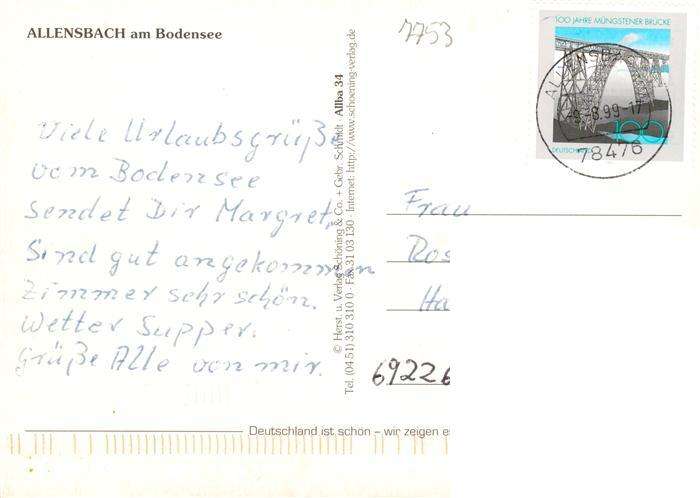 ALLENSBACH am Bodensee
7753
100 JAHRE MÜNGSTENER BRÜCKE
-9.-8.99-17
100
DEUTSCHLAND
78476
Viele Urlaubsgrüße
vom Bodensee
sendet Dir Margret,
Sind gut angekommen
Zimmer sehr schön.
Wetter Supper.
Grüße Alle von mir.
© Herst. u. Verlag Schöning & Co. + Gebr. Schmidt · Allba 34
Tel. (04 51) 310 310 0 · Fax 31 03 130 · Internet: http://www.schoening-verlag.de
Frau
Ros
Ha
69226
Deutschland ist schön – wir zeigen es